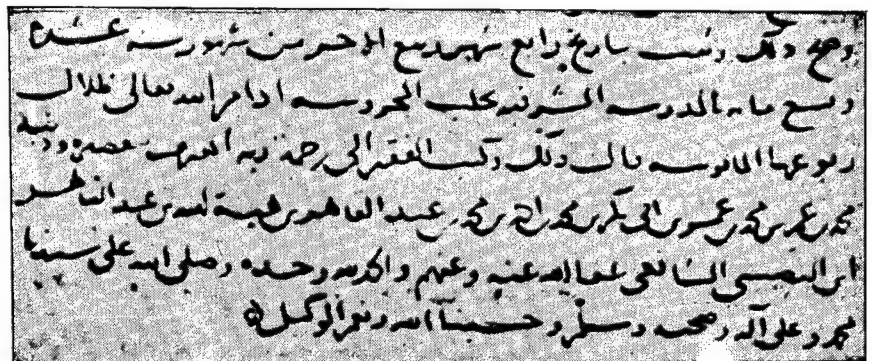 وصح ذلك وثبت بتاريخ رابع شهر ربيع الاخر من شهور سنه عشرة
وتسع مايه بالمدرسه الشرفيه بحلب المحروسه ادام الله تعالى ظلال
ربوعها المانوسه قال ذلك وكتب الفقير الى رحمة ربه المعترف وذنبه
محمد بن عمر بن محمد بن عمر بن ابى بكر بن محمد بن احمد بن محمد بن عبد القاهر بن هبة الله بن عبد القاهر
ابن النصيبى الشافعى عفا الله عنه وعنهم والحمد لله وحده وصلى الله على سيدنا
محمد وعلى آله وصحبه وسلم وحسبنا الله ونعم الوكيل